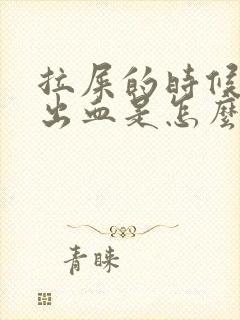 拉屎的時候
出血是怎麼
青睞